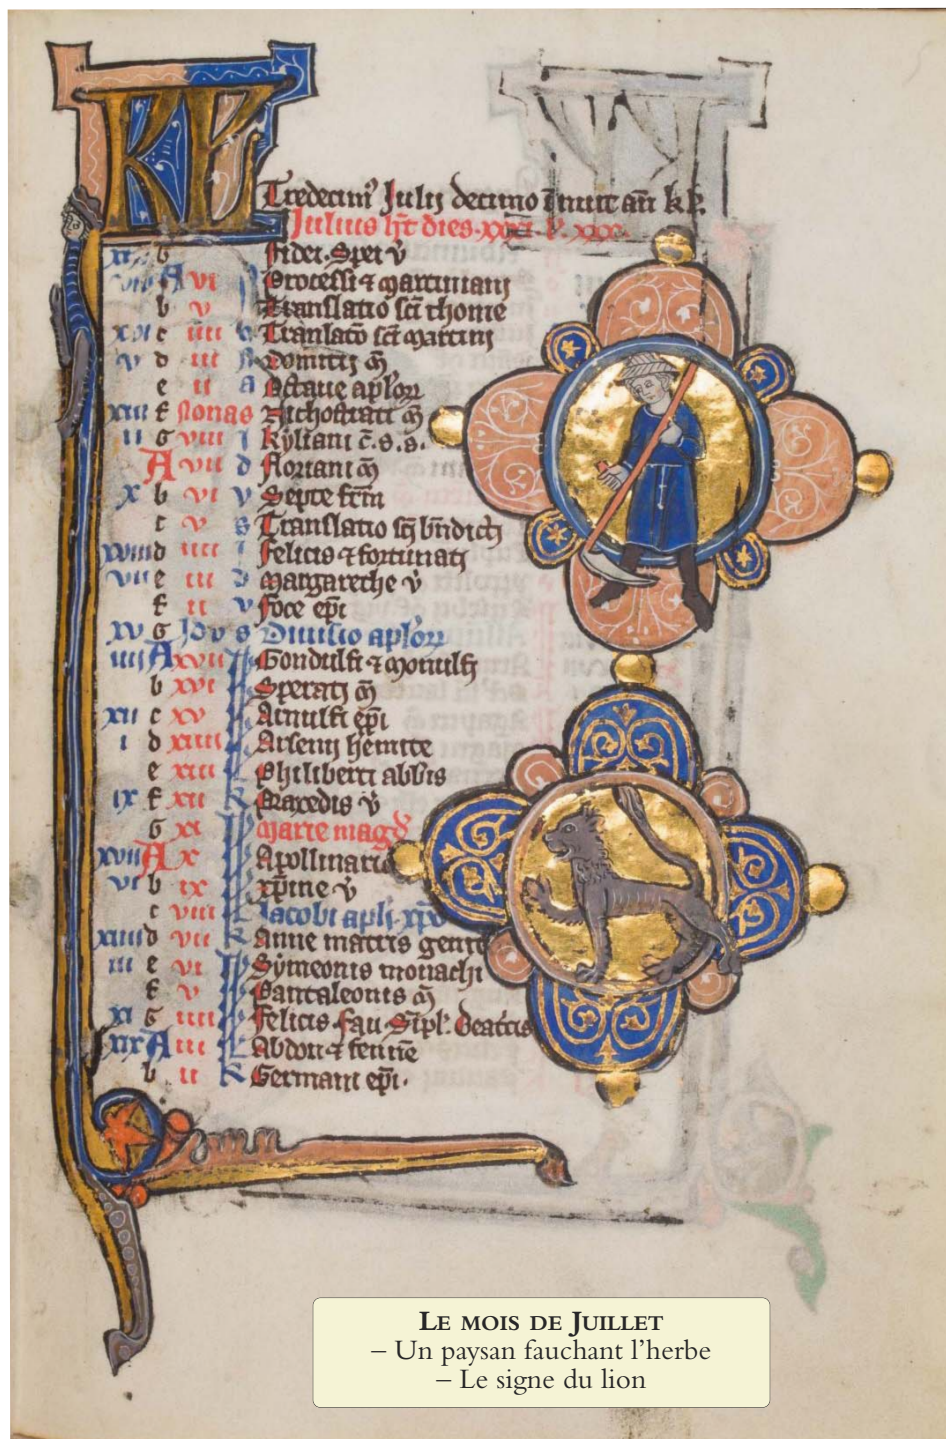 KL
Tredecim Julii decimo innuit an kl.
Julius ht dies xxxi l xxx
b Fidei. Spei v
A vi Processi ⁊ martiniani
b v Translatio sci thome
xvi c iiii Translato sci martini
v d iii Domitii m
e ii Octave aplor
xiii f Nonas Nichostrati m
ii g viii i Kyliani c. s. s.
A vii d Floriani m
x b vi v Septe frm
c v s Translatio sci bndicti
xviii d iiii i Felicis ⁊ fortunati
vii e iii d Margarethe v
f ii v Foce epi
xv g Idus Divisio aplor
iiii A xvii k Gondulfi ⁊ monulfi
b xvi k Sperati m
xii c xv k Arnulfi epi
i d xiiii k Arsenii hemite
e xiii k Philiberti abbis
ix f xii k Praxedis v
g xi k Marie magd
xvii A x k Apollinaris
vi b ix k xpine v
c viii k Jacobi apli. xpo
xiiii d vii k Anne matris genit
iii e vi k Symeonis monachi
f v k Pantaleonis m
xi g iiii k Felicis. Fau. Simpl. Beatricis
xix A iii k Abdon ⁊ sennen
b ii k Germani epi.
LE MOIS DE JUILLET
– Un paysan fauchant l’herbe
– Le signe du lion